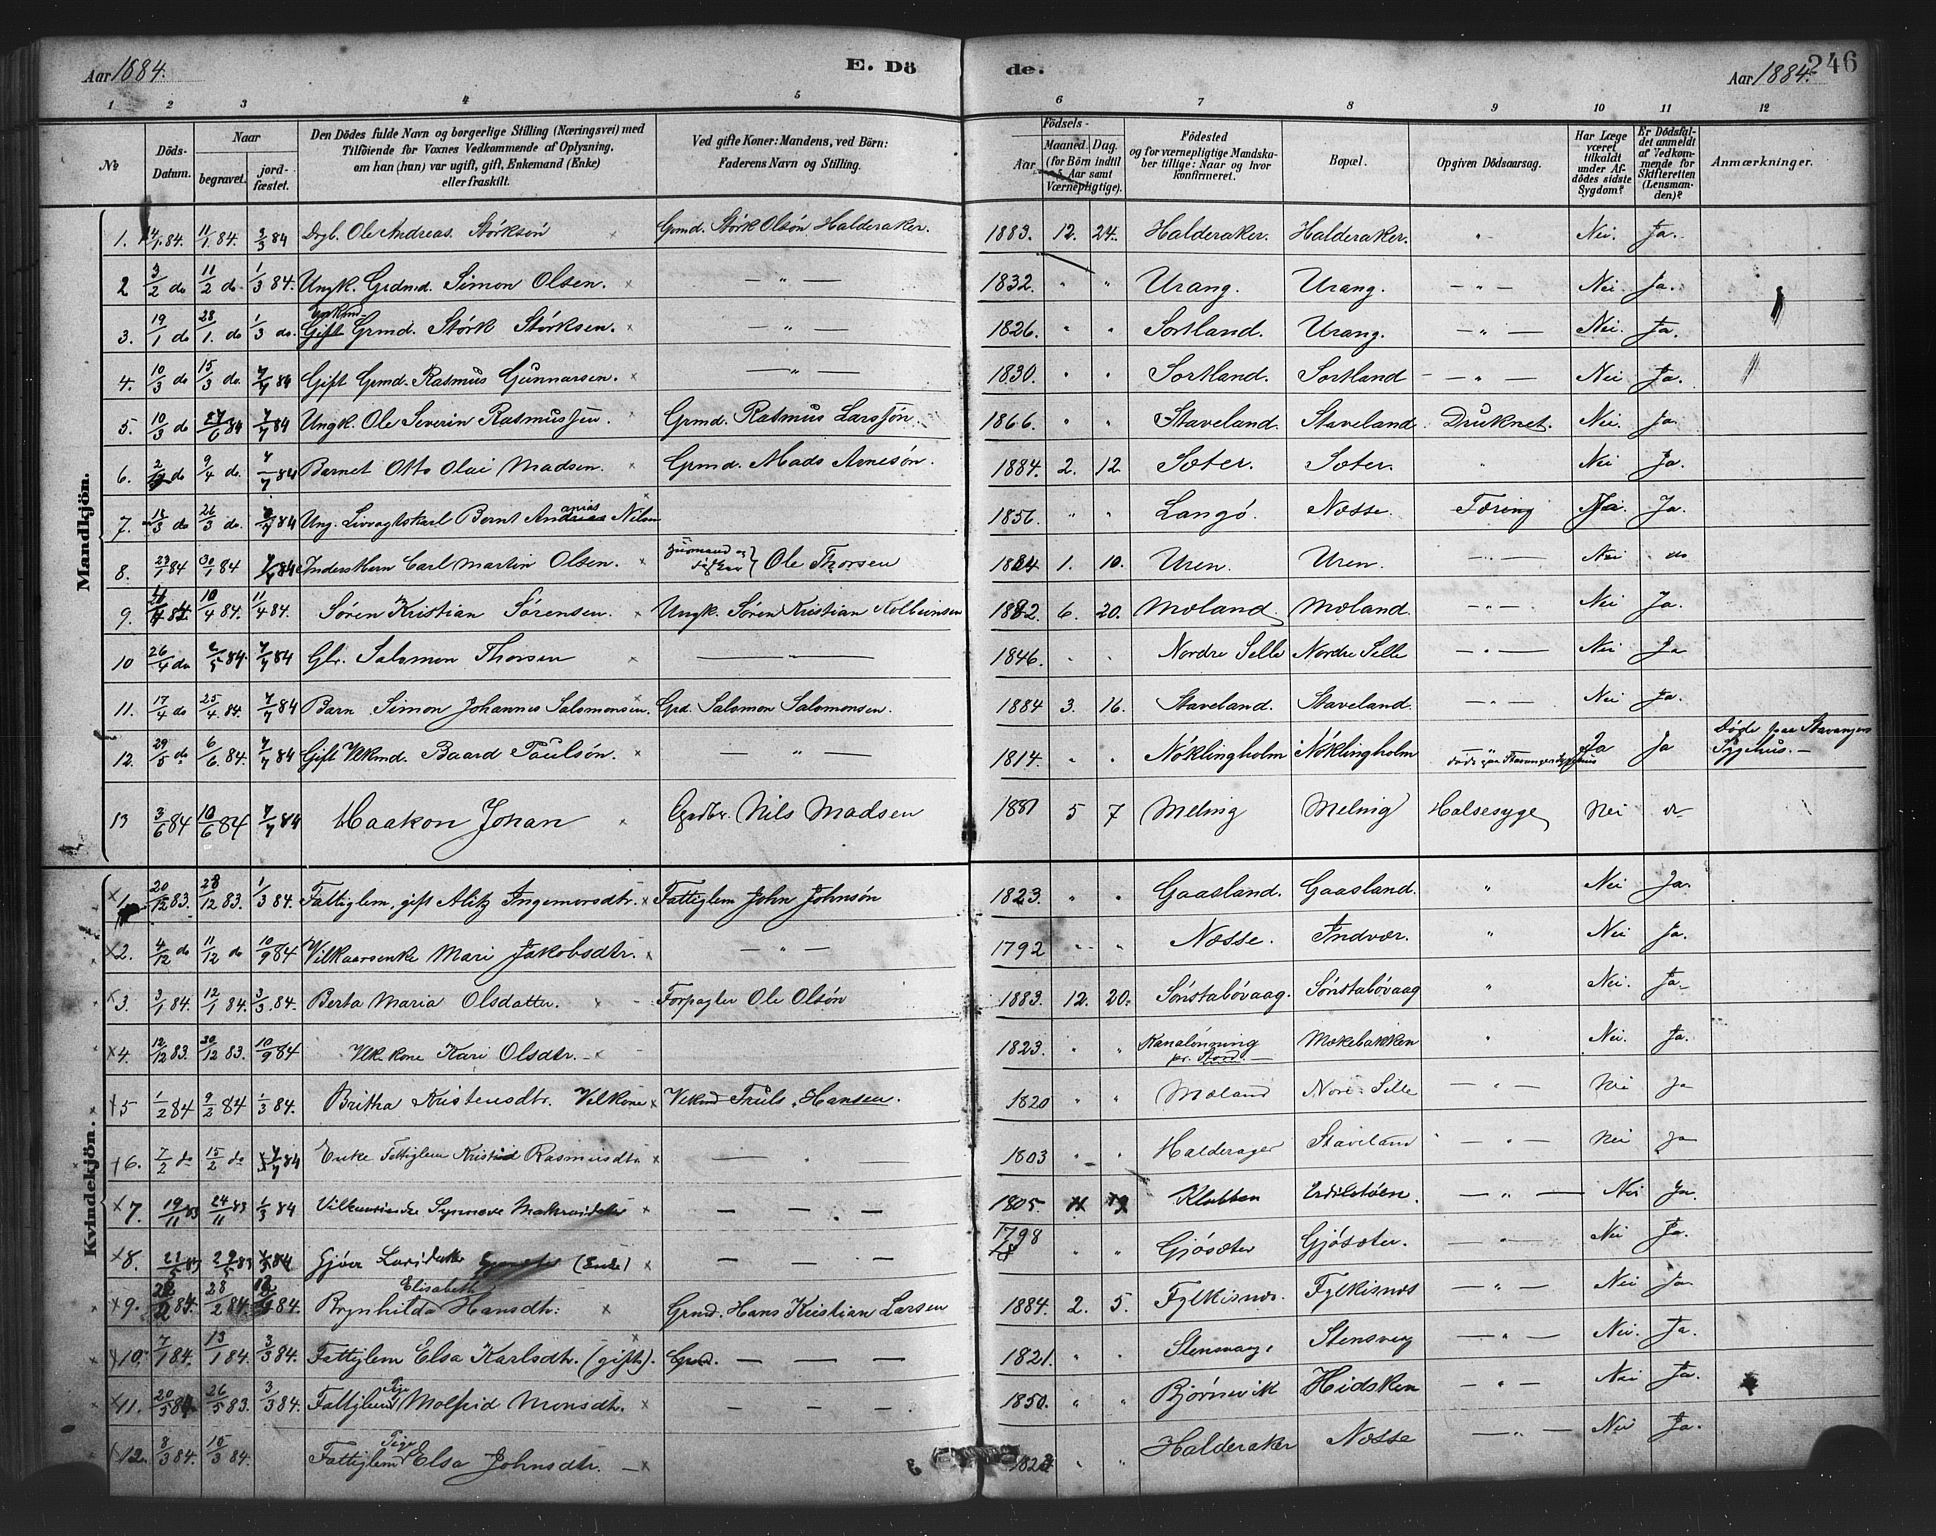 Aar 1884. E. Dö de. Aar 1884. 246
1 2 3 4 5 6 7 8 9 10 11 12
No
Döds-Datum.
Naar
begravet.
jordfæstet.
Den Dödes fulde Navn og borgerlige Stilling (Næringsvei) med
Tilföiende for Voxnes Vedkommende af Oplysning,
om han (hun) var ugift, gift, Enkemand (Enke)
eller fraskilt.
Ved gifte Koner: Mandens, ved Börn:
Faderens Navn og Stilling.
Födsels-
Aar
Maaned.
Dag.
(for Börn indtil
5 Aar samt
Værnepligtige).
Födested
og for værnepligtige Mandska-
ber tillige: Naar og hvor
konfirmeret.
Bopæl.
Opgiven Dödsaarsag.
Har Læge
været
tilkaldt
under Af-
dödes sidste
Sygdom?
Er Dödsfal-
det anmeldt
af Vedkom-
mende for
Skifteretten
(Lensman-
den)?
Anmærkninger.
Mandkjön.
1. 4/1 84. 11/1 84. 2/3 84 Drgb. Ole Andreas Störksön Grmd. Störk Olsön Halderaker. 1883. 12. 24. Halderaker. Halderaker. " Nei. Ja.
2 3/2 do 11/2 do 1/3 84. Ungk. Grdmd. Simon Olsen. — " — 1832. " " Urang. Urang. — " — Nei. Ja.
3. 19/1 do 28/1. do 1/3 do Enkemd. Gift Grmd. Störk Störksen. — " — 1826. " " Sortland. Urang. — " — Nei. Ja.
4. 10/3 do 15/3 do. 7/7 84 Gift Grmd. Rasmus Gunnarsen. — " — 1830. " " Sortland. Sortland — " — Nei Ja.
5. 10/3 do 27/6 84 7/7 84 Ungk. Ole Severin Rasmussen Grmd. Rasmus Larssön. 1866. " " Staveland. Staveland. Druknet. Nei. Ja.
6. 2/ do 9/4 do. 7/7 84 Barnet Otto Olai Madsen. Grmd. Mads Arnesön. 1884. 2. 12. Sæter. Sæter. " Nei Ja.
7. 18/3 do 26/3 do. 7/7 84 Ung. Livvagtskarl Bernt Andreas anias Nilsen 1856. " " Langö. Næsse. Tæring Ja. Ja.
8. 23/1 84 30/1 84 84 Inderstbarn Carl Martin Olsen. Husmand og Ole Thorsen 1884. 1. 10. Uren. Uren. — " — Nei do
9. 84. 10/4 84. 11/4 84. Sören Kristian Sörensen. Ungk. Sören Kristian Kolbeinsen 1882. 6. 20. Mæland. Mæland. — " — Nei Ja.
10 26/4 do 2/5 84. 7/7 84 Gbr. Salomon Thorsen — " — 1846. " " Nordre Selle Nordre Selle — " — Nei Ja
11. 17/4 do 25/4 84. 7/7 84 Barn Simon Johannes Salomonsen. Grd. Salomon Salomonsen. 1884 3. 16. Staveland. Staveland. — " — Nei. Ja.
12. 29/5 do 6/6 84. 7/7 84 Gift Vlkmd. Baard Paulsön. — " — 1814. " " Nöklingholm Nöklingholm — " — döde paa Stavanger Sygehus Ja Ja Döde paa Stavanger Sygehus.—
13 3/6 84 10/6 84 7/7 84 Haakon Johan Grdbr. Nils Madsen 1881 5 7 Meling Meling Halsesyge Nei do
Kvindekjön.
1. 20/12 83. 28/12 83. 1/3 84. Fattiglem, gift Alitz Ingemorsdtr. Fattiglem John Johnsön 1823. " " Gaasland. Gaasland. " Nei Ja.
2. 4/12 do 11/12 do 10/9 84 Vilkaarsenke Mari Jakobsdtr. — " — 1792 " " Næsse. Indvær. " Nei Ja.
3 3/1 84. 12/1 84. 3/3 84. Berta Maria Olsdatter. Forpagter Ole Olsön 1883. 12. 20. Sönstabövaag. Sönstabövaag " Nei. Ja.
4. 12/12 83. 30/12 83. 10/9 84 Vlk. kone Kari Olsdtr. — 1823. " " Kanalönning pr. Stord Mækebakken " Nei. Ja.
5 1/2 84 9/2 84 1/3 84. Britha Kristensdtr. Vilkone Vlkmd Truls Hansen. 1820 " " Mæland Nore Selle — " — Nei Ja
6. 7/2 do 15/2 do 7/7 84 Enke Fattiglem Kristid Rasmusdtr — " — 1803 " " Halderager Staveland — " — Nei Ja
7. 19/11 83 24/11 83 1/3 84 — — — 1805. Klubben — " — Nei Ja.
8. 21/5 83 29/5 83 84 Gjöer (Enke) — — — 1798 " " Gjösæter Gjösæter. — " — Nei. Ja.
9. 84. 28/2 84. 84. Elisabeth Brynhilda Hansdtr: Grmd. Hans Kristian Larsen 1884. 2. 5. Fylkisnes. Fylkisnæs — " — Nei Ja.
10. 7/1 84. 13/1 84. 3/3 84. Fattiglem Elsa Karlsdtr. (gift). Grmd. — — — 1821. " " Stensvaag. Stensvaag — " — Nei. Ja.
11. 20/5 84 26/5 83. 3/3 84. Fattiglem Pige Molfrid Monsdtr. — — — 1850. " " Björnevik Hidsken — " — Nei Ja.
12. 8/3 84. 15/3 84. Fattiglem Pige Elsa Johnsdtr. 1823 " " Halderaker Næsse — " — Nei Ja.